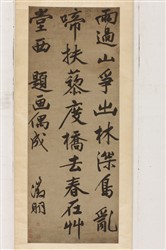 雨過山爭出林深鳥亂
啼扶藜度橋去春在艸
堂西 題画偶成
徵明